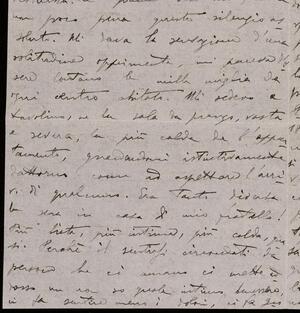 non poco pena questo silenzio as
soluto. Mi dava la sensazione d'una
solitudine opprimente, mi pareva d'es
sere lontano le mille miglia da
ogni centro abitato. Mi sedevo a
tavolino, ne la sala da pranzo, vasta
e severa, la più calda de l'appar
tamento, guardandomi istintivamente
dattorno come ad aspettare l'arri
vo di qualcuno. Era tanto diversa
la sera in casa di mio fratello!
Più lieta, più intima, più calda,
si. Perchè il sentirsi circondati da
persone che ci amano ci mette